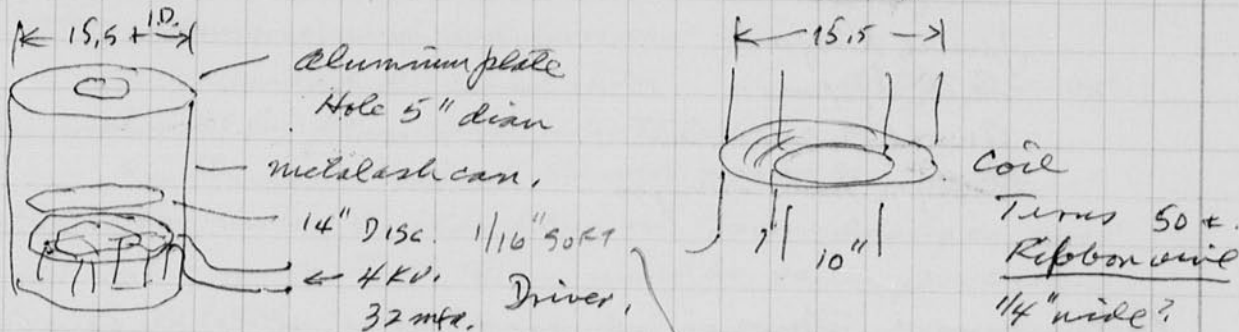 15.5 + I.D.
Aluminum plate
Hole 5" diam
metal ash can.
14" Disc. 1/16" SOFT
4 KV. Driver.
32 mfd.
15.5
Coil
10"
Turns 50 ±.
Ribbon wire
1/4" wide?